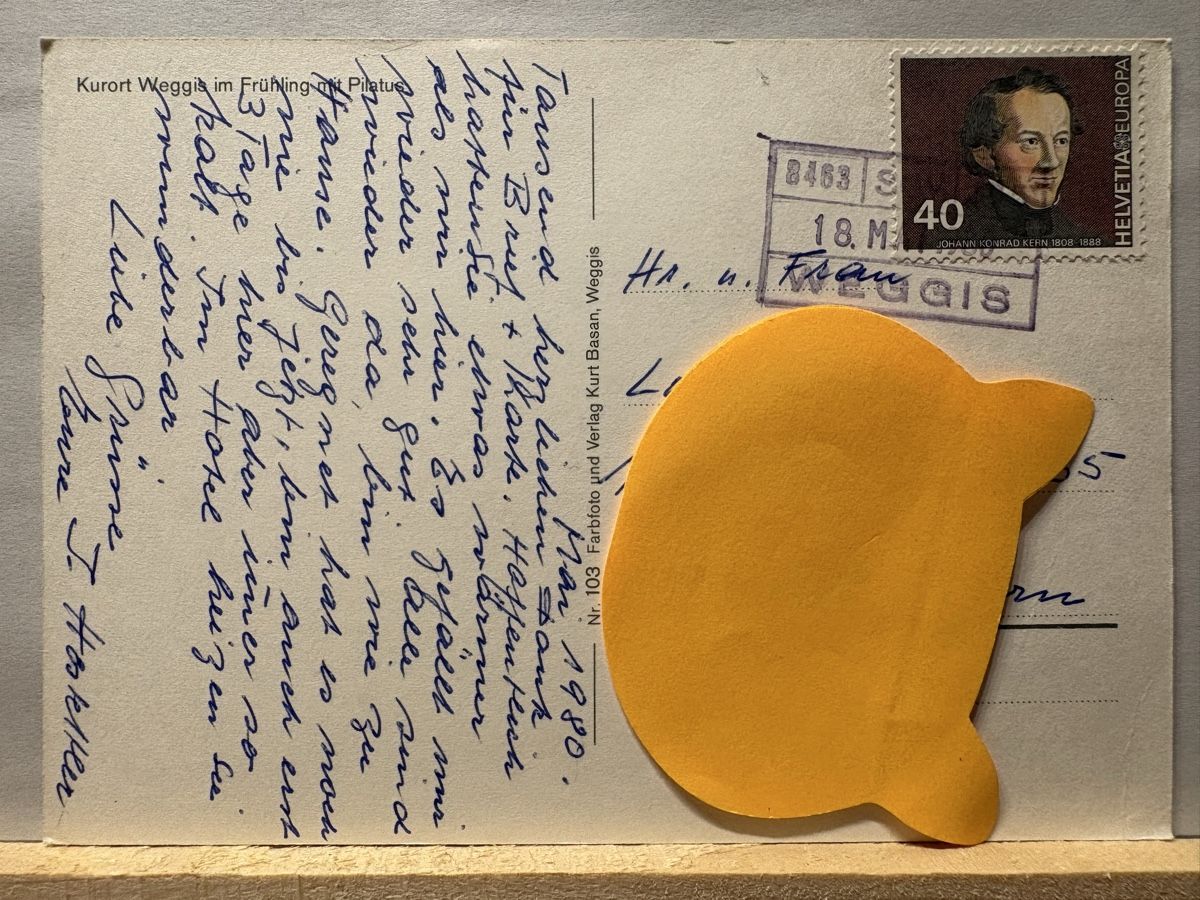 Kurort Weggis im Frühling mit Pilatus
Mai 1980.
Tausend herzlichen Dank
für Brief + Karte. Hoffentlich
hatten Sie etwas wärmer
als wir hier. Es gefällt mir
wieder sehr gut. Alle sind
wieder da, bin wie zu
Hause. Geregnet hat es noch
nie bis jetzt, bin auch erst
3 Tage hier aber im̄er so
kalt. Im Hotel heizen sie
wunderbar
Liebe Grüsse
Eure J.
Nr. 103 Farbfoto und Verlag Kurt Basan, Weggis
40
JOHANN KONRAD KERN 1808-1888
HELVETIA EUROPA
8463
18. M
WEGGIS
Hr. u. Frau